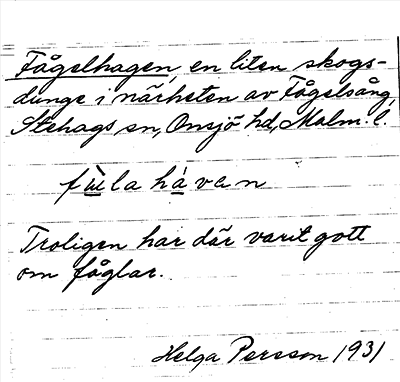 Fågelhagen, en liten skogs-
dunge i närheten av Fågelsång,
Stehags sn, Onsjö hd, Malm. l.
fùla hávan
Troligen har där varit gott
om fåglar.
Helga Persson 1931